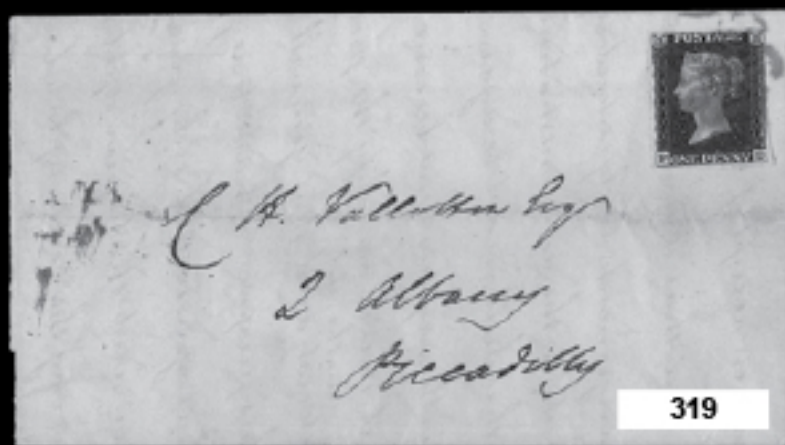 POSTAGE
ONE PENNY
H. Vallotton Esqr
2 Albany
Piccadilly
319